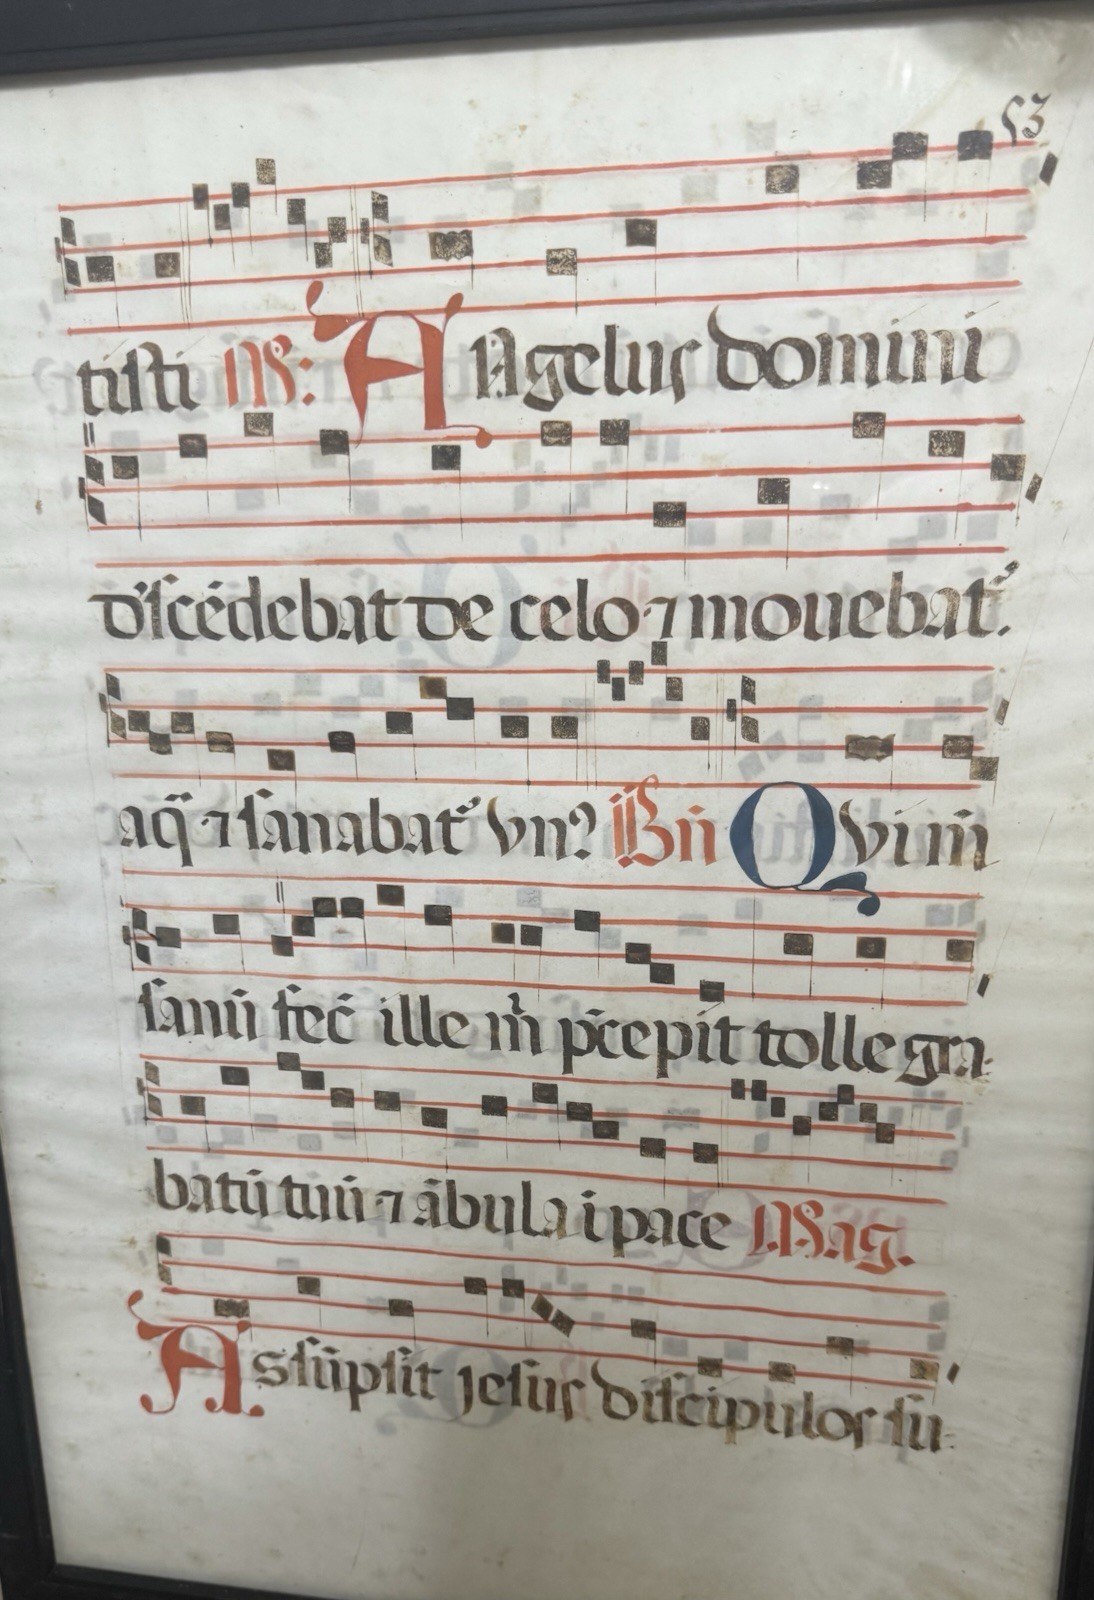 53
tisti M: ANgelus domini
d'scēdebat de celo ⁊ mouebat᷑.
aq̄ ⁊ sanabat᷑ vn? Bn̄ Qvi m̄
sanū fec̄ ille m̄ p̄cepit tolle gra-
batū tuū ⁊ ābula i pace Mag.
Assūpsit jesus discipulos su-